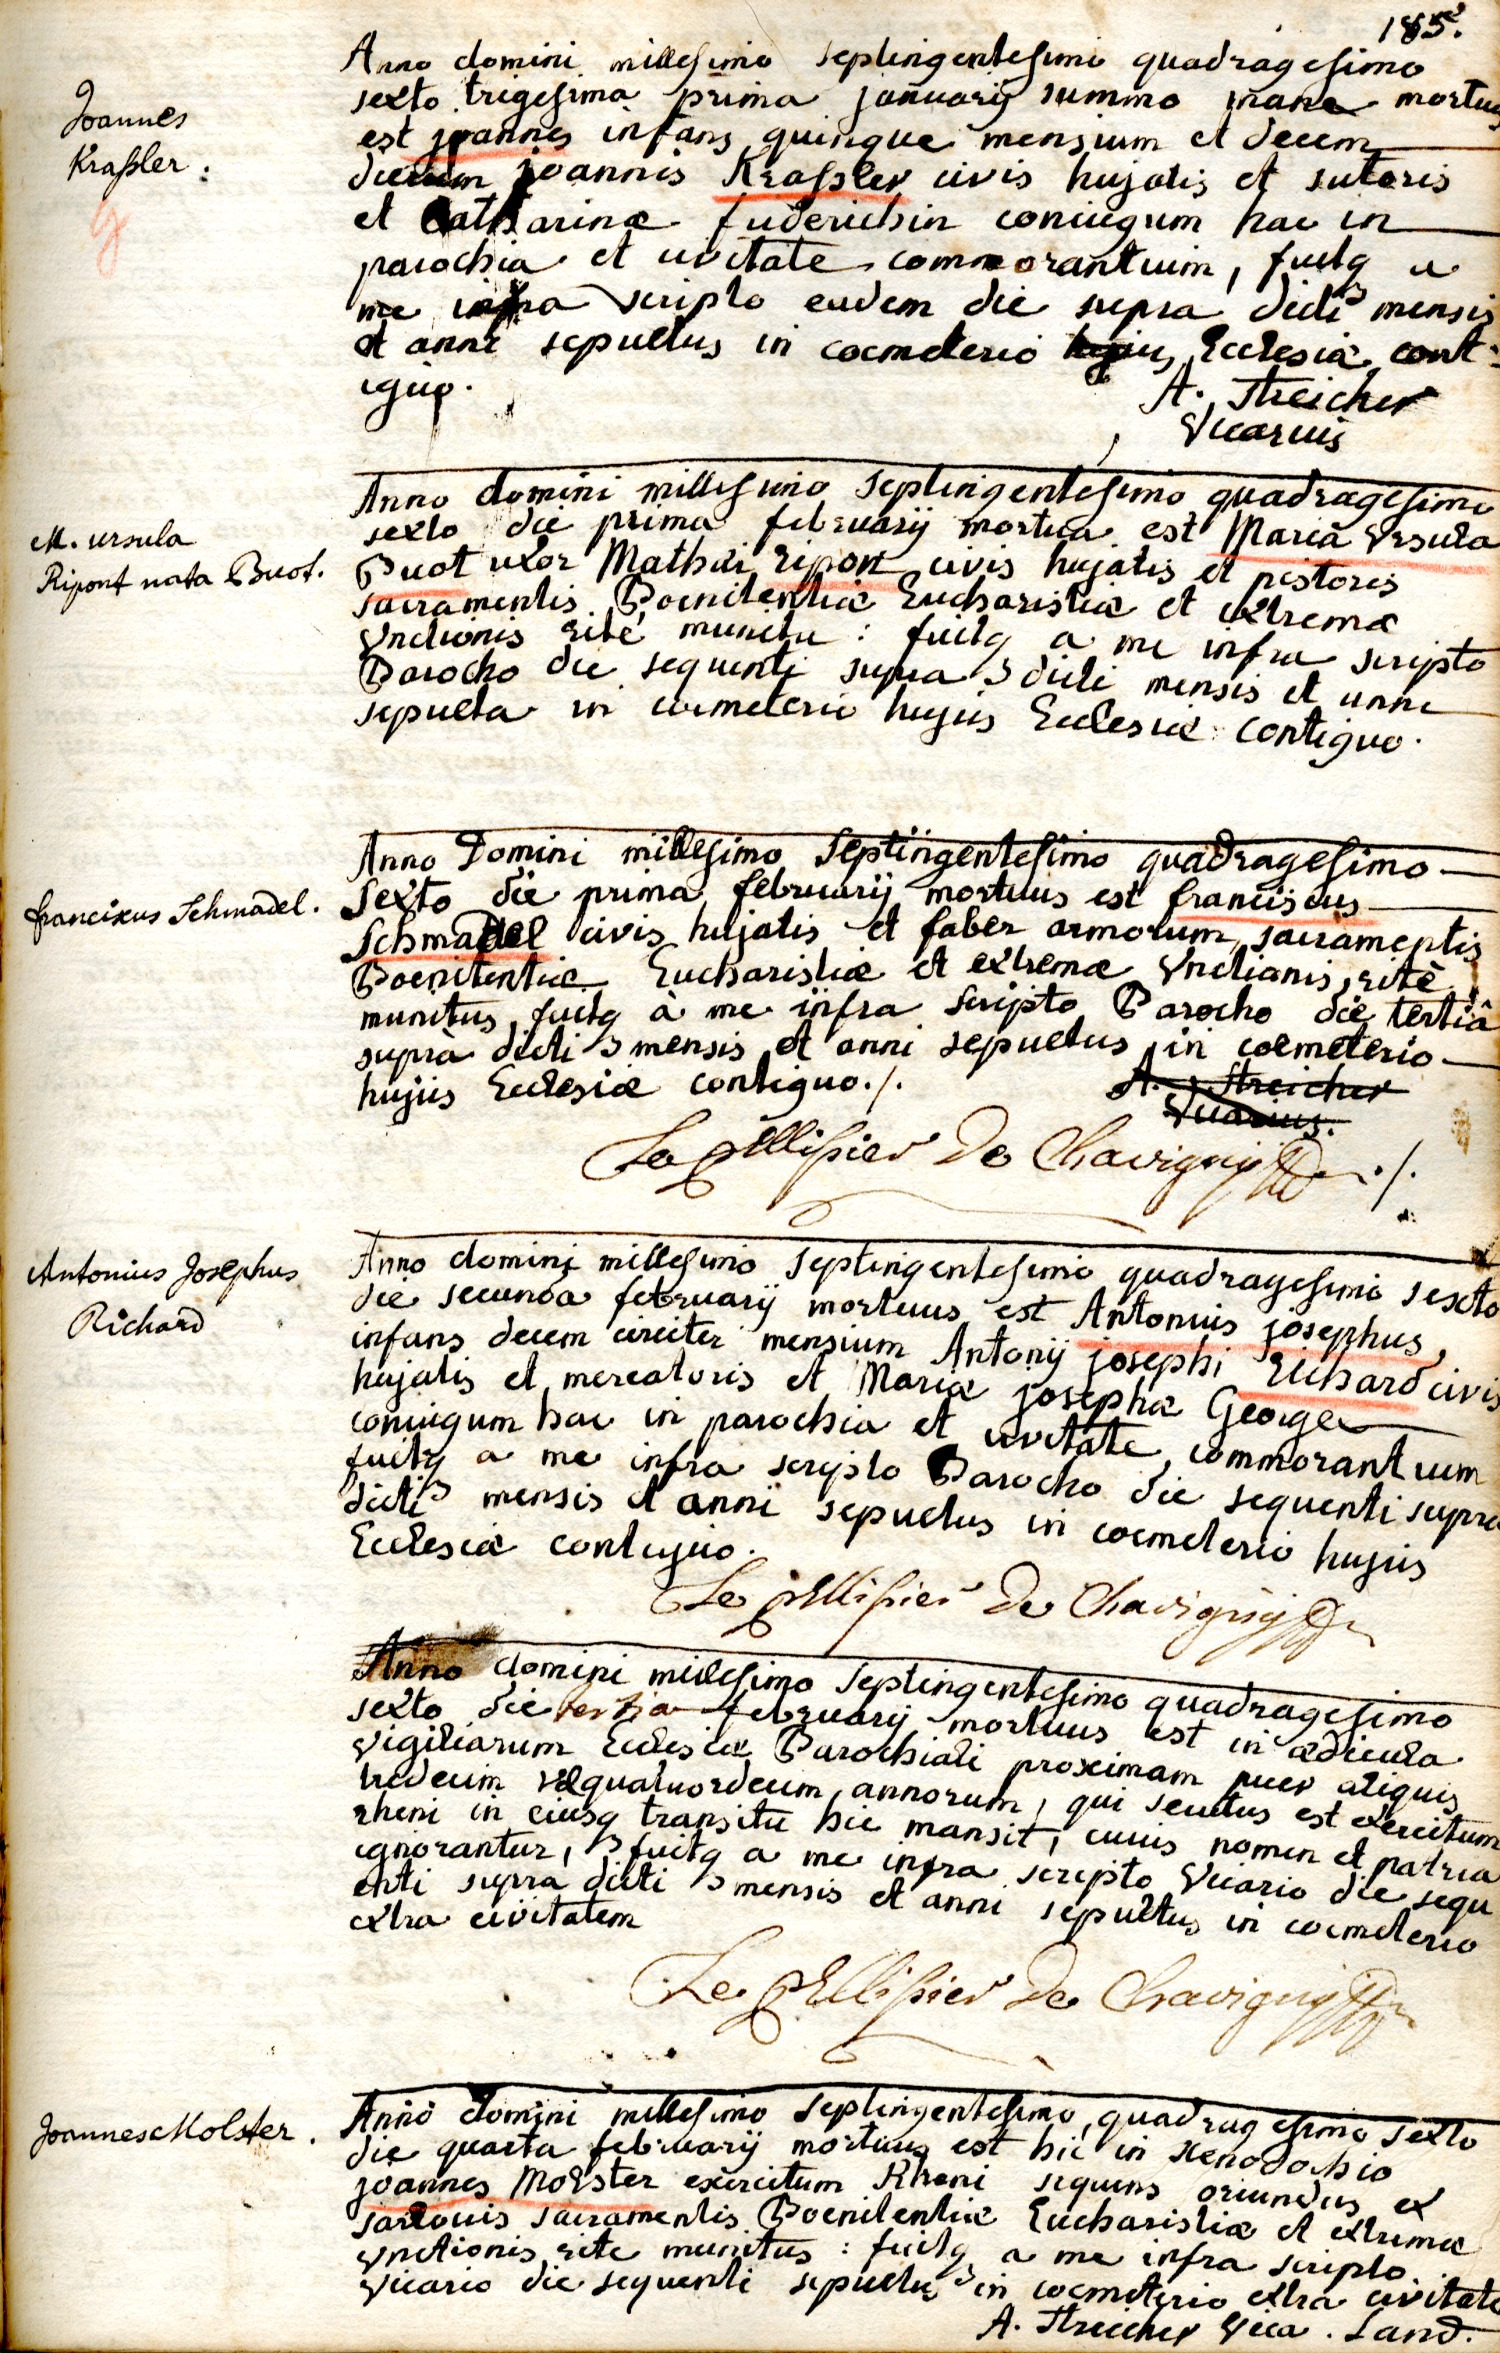 185.
Joannes
Kraßler :
Anno domini millesimo septingentesimo quadragesimo
sexto trigesima prima januarij summo mane mortuus
est joannes infans quinque mensium et decem
dierum joannis Kraßler civis hujatis et sutoris
et Catharinæ fuderichin coniugum hac in
parochia et civitate commorantium, fuitq a
me infra scripto eadem die supra dicti mensis
et anni sepultus in coemeterio hujus Ecclesiæ cont:
iguo.
A. Streicher
Vicarius
M. ursula
Ripont nata Buot.
Anno domini millesimo septingentesimo quadragesimo
sexto die prima februarij mortua est Maria Vrsula
Buot uxor Mathæi ripont civis hujatis et pistoris
sacramentis Poenitentiæ Eucharistiæ et extremæ
Vnctionis ritè munita : fuitq a me infra scripto
Parocho die sequenti supra dicti mensis et anni
sepulta in coemeterio hujus Ecclesiæ contiguo.
franciscus Schmadel.
Anno Domini millesimo septingentesimo quadragesimo
sexto die prima februarij mortuus est franciscus
Schmadel civis hujatis et faber armorum sacramentis
Poenitentiæ Eucharistiæ et extremæ Vnctionis ritè
munitus, fuitq à me infra scripto Parocho die tertiâ
suprà dicti mensis et anni sepultus in coemeterio
hujus Ecclesiæ contiguo./.
A. Streicher
Vicarius.
Le pellissier De Chavigny ./.
Antonius Josephus
Richard
Anno domini millesimo septingentesimo quadragesimo sexto
die secunda februarij mortuus est Antonius josephus,
infans decem circiter mensium Antonij josephi Richard civis
hujatis et mercatoris et Mariæ josephæ George
coniugum hac in parochia et civitate commorantium
fuitq a me infra scripto Parocho die sequenti supra
dicti mensis et anni sepultus in coemeterio hujus
Ecclesiæ contiguo.
Le pellissier De Chavigny
Anno domini millesimo septingentesimo quadragesimo
sexto die tertia februarij mortuus est in ædicula
vigiliarum Ecclesiæ Parochiali proximam puer aliquis
tredecim vel quatuordecim annorum, qui secutus est exercitum
rheni in eiusq transitu hic mansit, cuius nomen et patria
ignorantur, fuitq a me infra scripto Vicario die sequ
enti supra dicti mensis et anni sepultus in coemeterio
extra civitatem
Le pellissier De Chavigny
Joannes Molster.
Anno domini millesimo septingentesimo quadragesimo sexto
die quarta februarij mortuus est hic in xenodochio
joannes Molster exercitum Rheni sequens oriundus ex
sarlouis sacramentis Poenitentiæ Eucharistiæ et extremæ
Vnctionis rite munitus : fuitq a me infra scripto
Vicario die sequenti sepultus in coemeterio extra civitate
A. Streicher Vica. Land.